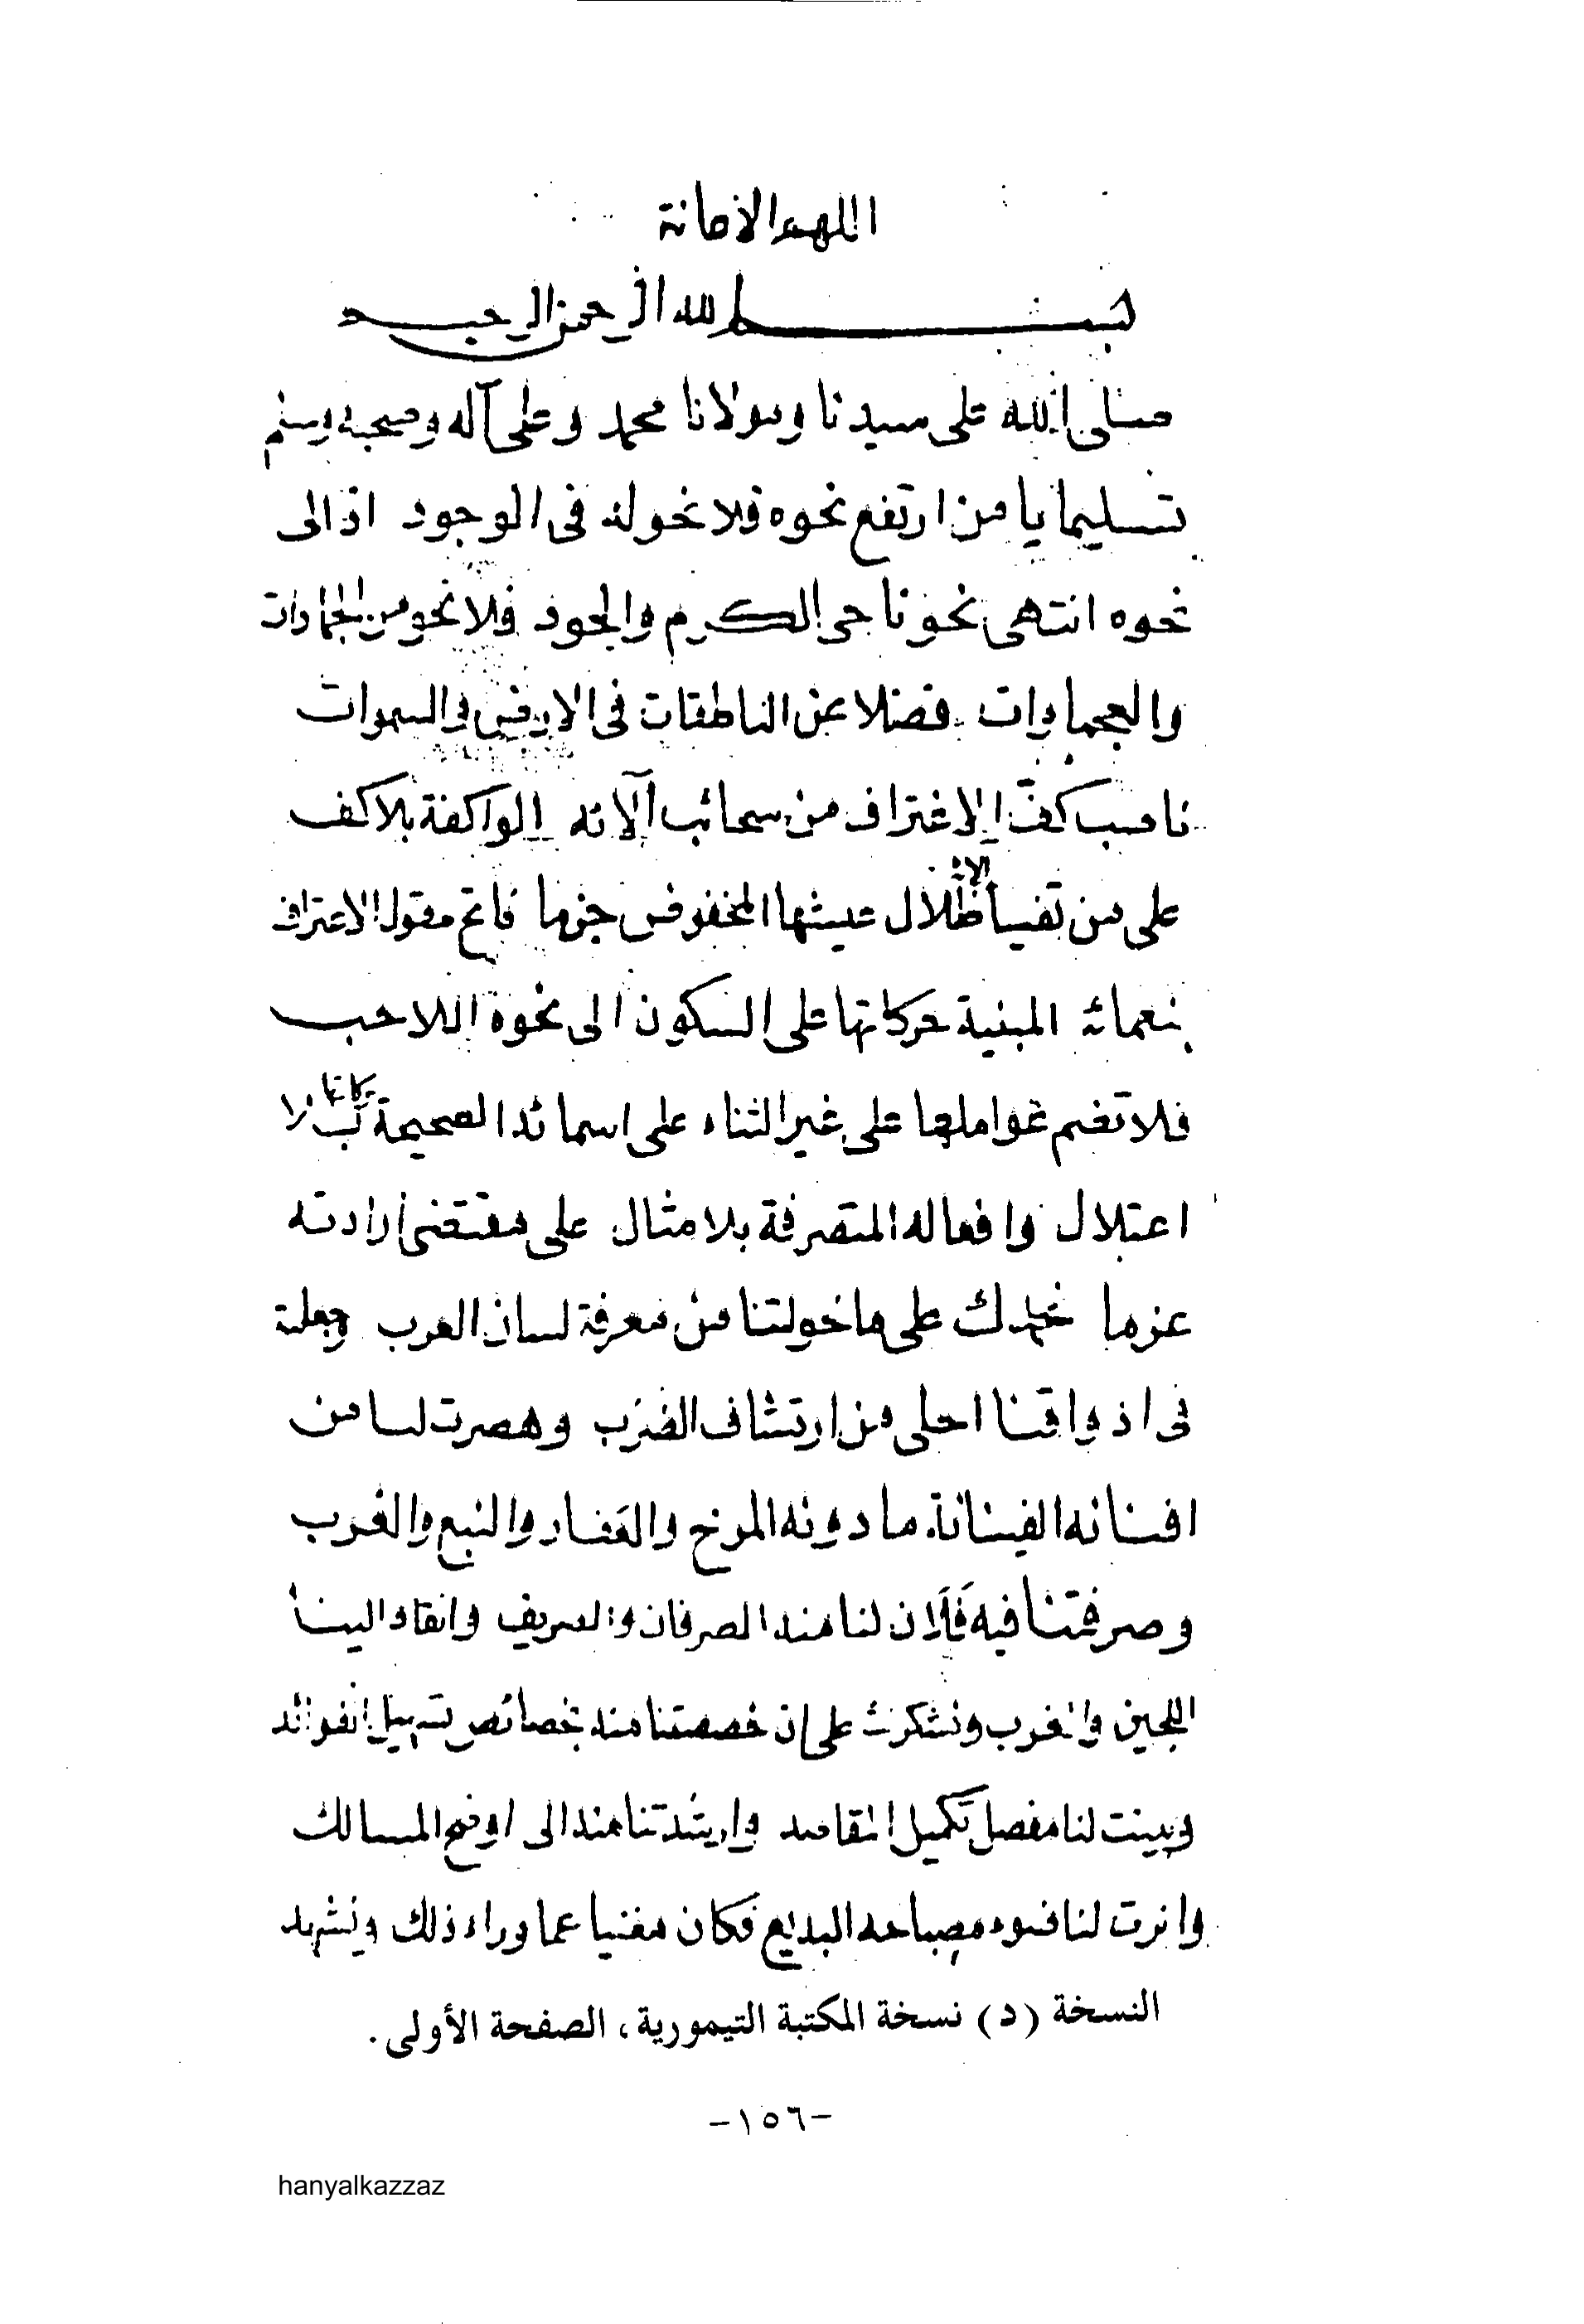 اللهم الاعانة
بسم الله الرحمن الرحيم
صلى الله على سيدنا ومولانا محمد وعلى آله وصحبه وسلم
تسليما يا من ارتفع نحوه فلا نحو له فى الوجود اذ الى
نحوه انتهى نحونا حى الكرم والجود فلا نحو من الجمادات
والعجماوات فضلا عن الناطقات فى الارض والسموات
ناصب كف الاغتراف من سحائب آلائه الواكفة بلا كف
على من تفيأ ظلال عيشها المخفوض جزما فاتح مقول الاعتراف
بنعمائه المبنية حركاتها على السكون الى نحوه اللاحب
فلا تضم عواملها على غير الثناء على اسمائه الصحيحة بلا
اعتلال وافعاله المتصرفة بلا مثال على مقتضى ارادته
عزما نحمدك على ما خولتنا من معرفة لسان العرب وجعلته
فى اذواقنا احلى من ارتشاف الضرب وهصرت لنا من
افنانه الفينانة ما دونه المرخ والعفار والنبع والغرب
وصرفتنا فيه فَلَان لنا منه الصرفان والصريف وانقاد الينا
اللجين والغرب ونشكرك على ان خصصتنا منه بخصائص تسهيل الفوائد
وبينت لنا مفصل تكميل المقاصد وارشدتنا منه الى اوضح المسالك
وانرت لنا ضوء مصباحه البديع فكان مغنيا عما وراء ذلك ونشهد
النسخة (د) نسخة المكتبة التيمورية، الصفحة الأولى.
-١٥٦-
hanyalkazzaz